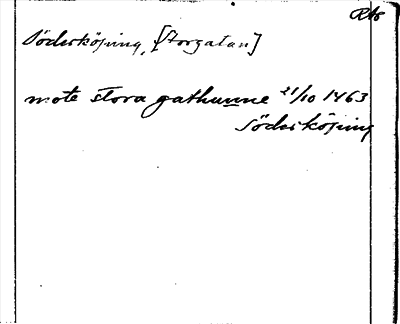 RAp
Söderköping, [Storgatan]
mote stora gathunne 21/10 1463
Söderköping